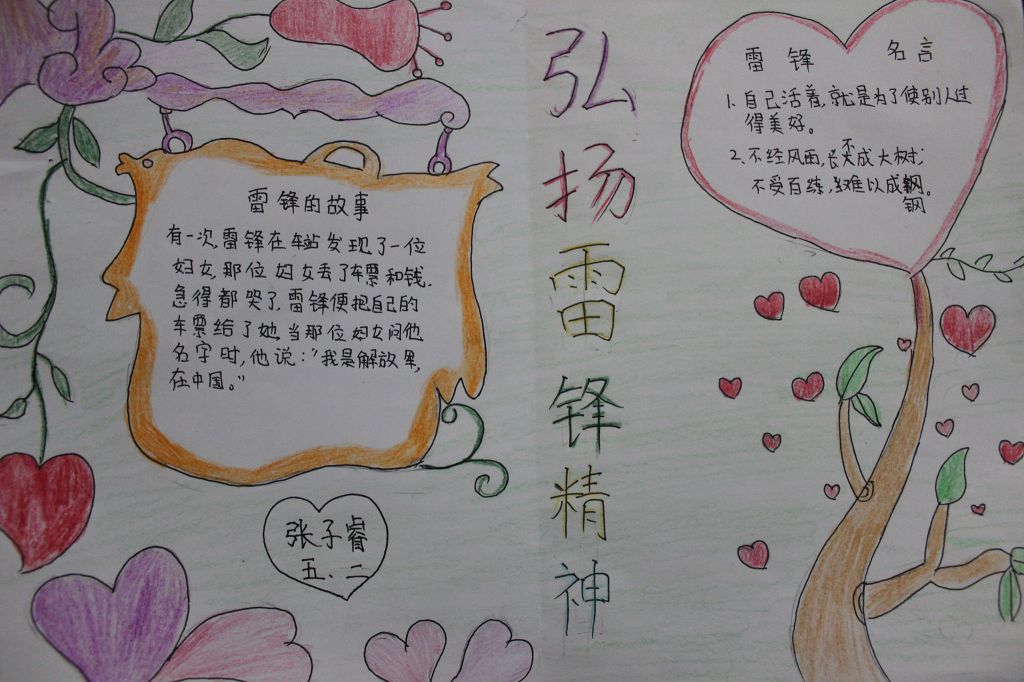 雷锋的故事
有一次,雷锋在车站发现了一位
妇女,那位妇女丢了车票和钱,
急得都哭了,雷锋便把自己的
车票给了她,当那位妇女问他
名字时,他说:"我是解放军,
在中国。"
张子睿
五、二
弘扬雷锋精神
雷锋 名言
1. 自己活着,就是为了使别人过
得美好。
2. 不经风雨,长不成大树;
不受百练,难以成钢。